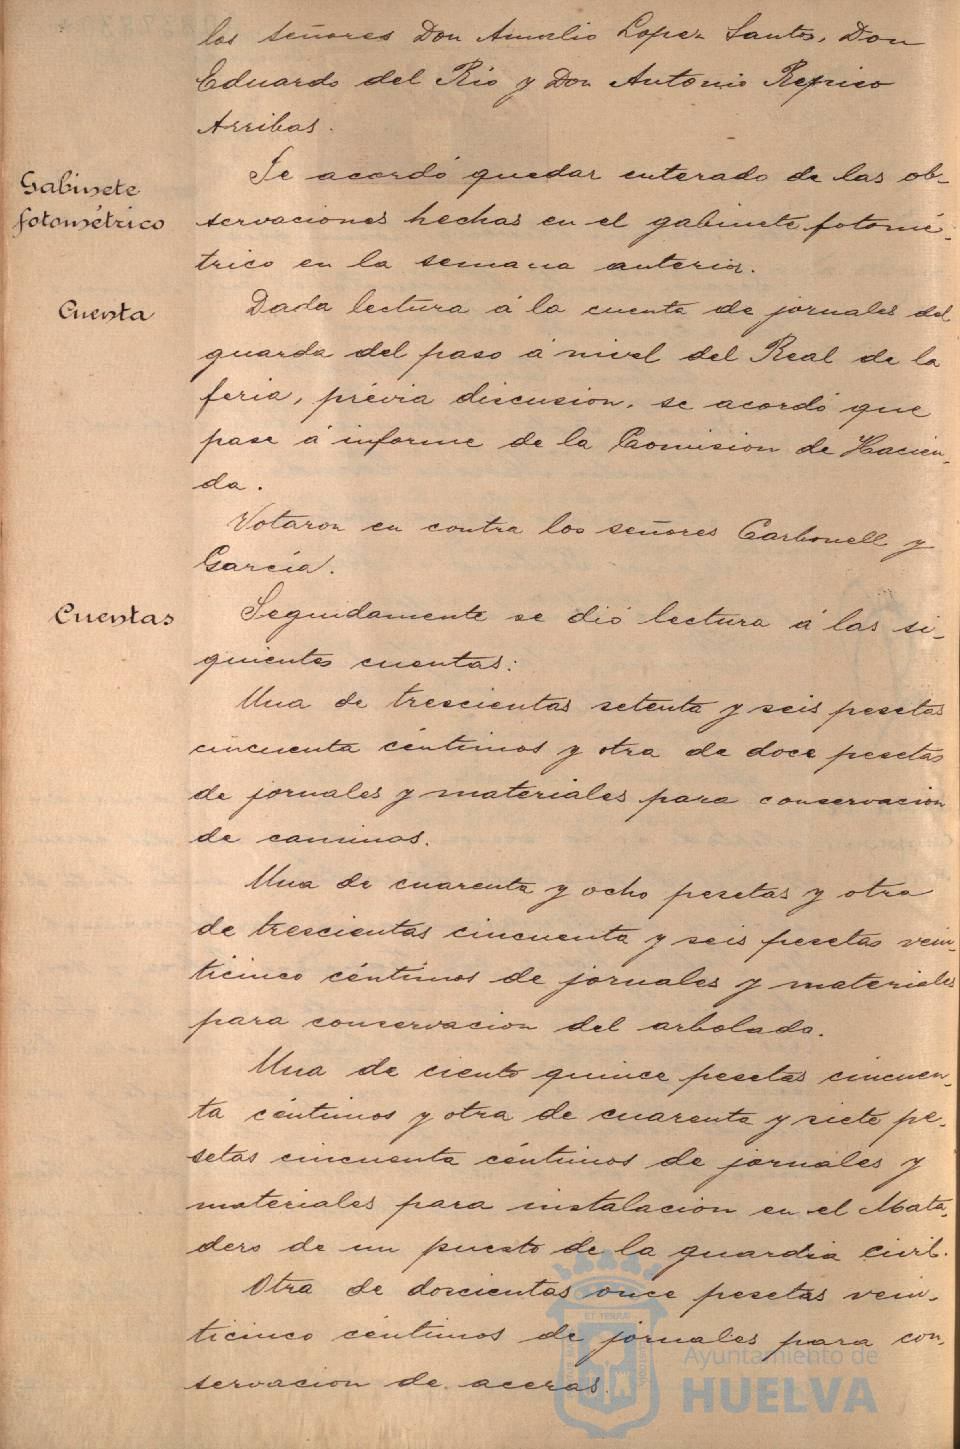 los señores Don Aurelio Lopez Santos, Don
Eduardo del Rio y Don Antonio
Arribas.
Gabinete
fotométrico
Se acordó quedar enterado de las ob-
servaciones hechas en el gabinete fotomé-
trico en la semana anterior.
Cuenta
Dada lectura á la cuenta de jornales del
guarda del paso á nivel del Real de la
feria, prévia discusion, se acordó que
pase á informe de la Comision de Hacien-
da.
Votaron en contra los señores Carbonell y
García.
Cuentas
Seguidamente se dió lectura á las si-
guientes cuentas:
Una de trescientas setenta y seis pesetas
cincuenta céntimos y otra de doce pesetas
de jornales y materiales para conservacion
de caminos.
Una de cuarenta y ocho pesetas y otra
de trescientas cincuenta y seis pesetas vein-
ticinco céntimos de jornales y materiales
para conservacion del arbolado.
Una de ciento quince pesetas cincuen-
ta céntimos y otra de cuarenta y siete pe-
setas cincuenta céntimos de jornales y
materiales para instalacion en el Mata-
dero de un puesto de la guardia civil.
Otra de doscientas once pesetas vein-
ticinco céntimos de jornales para con-
servacion de aceras.
Ayuntamiento de
HUELVA